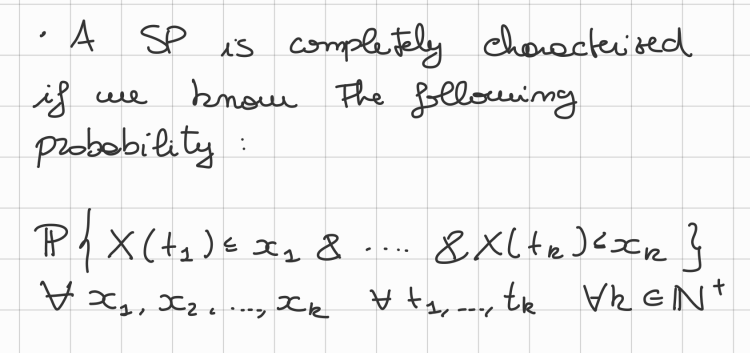 · A SP is completely characterised
if we know the following
probability :
ℙ{ X(t₁) ≤ x₁ & .... & X(tₖ) ≤ xₖ }
∀ x₁, x₂, ..., xₖ ∀ t₁, ..., tₖ ∀k ∈ ℕ⁺